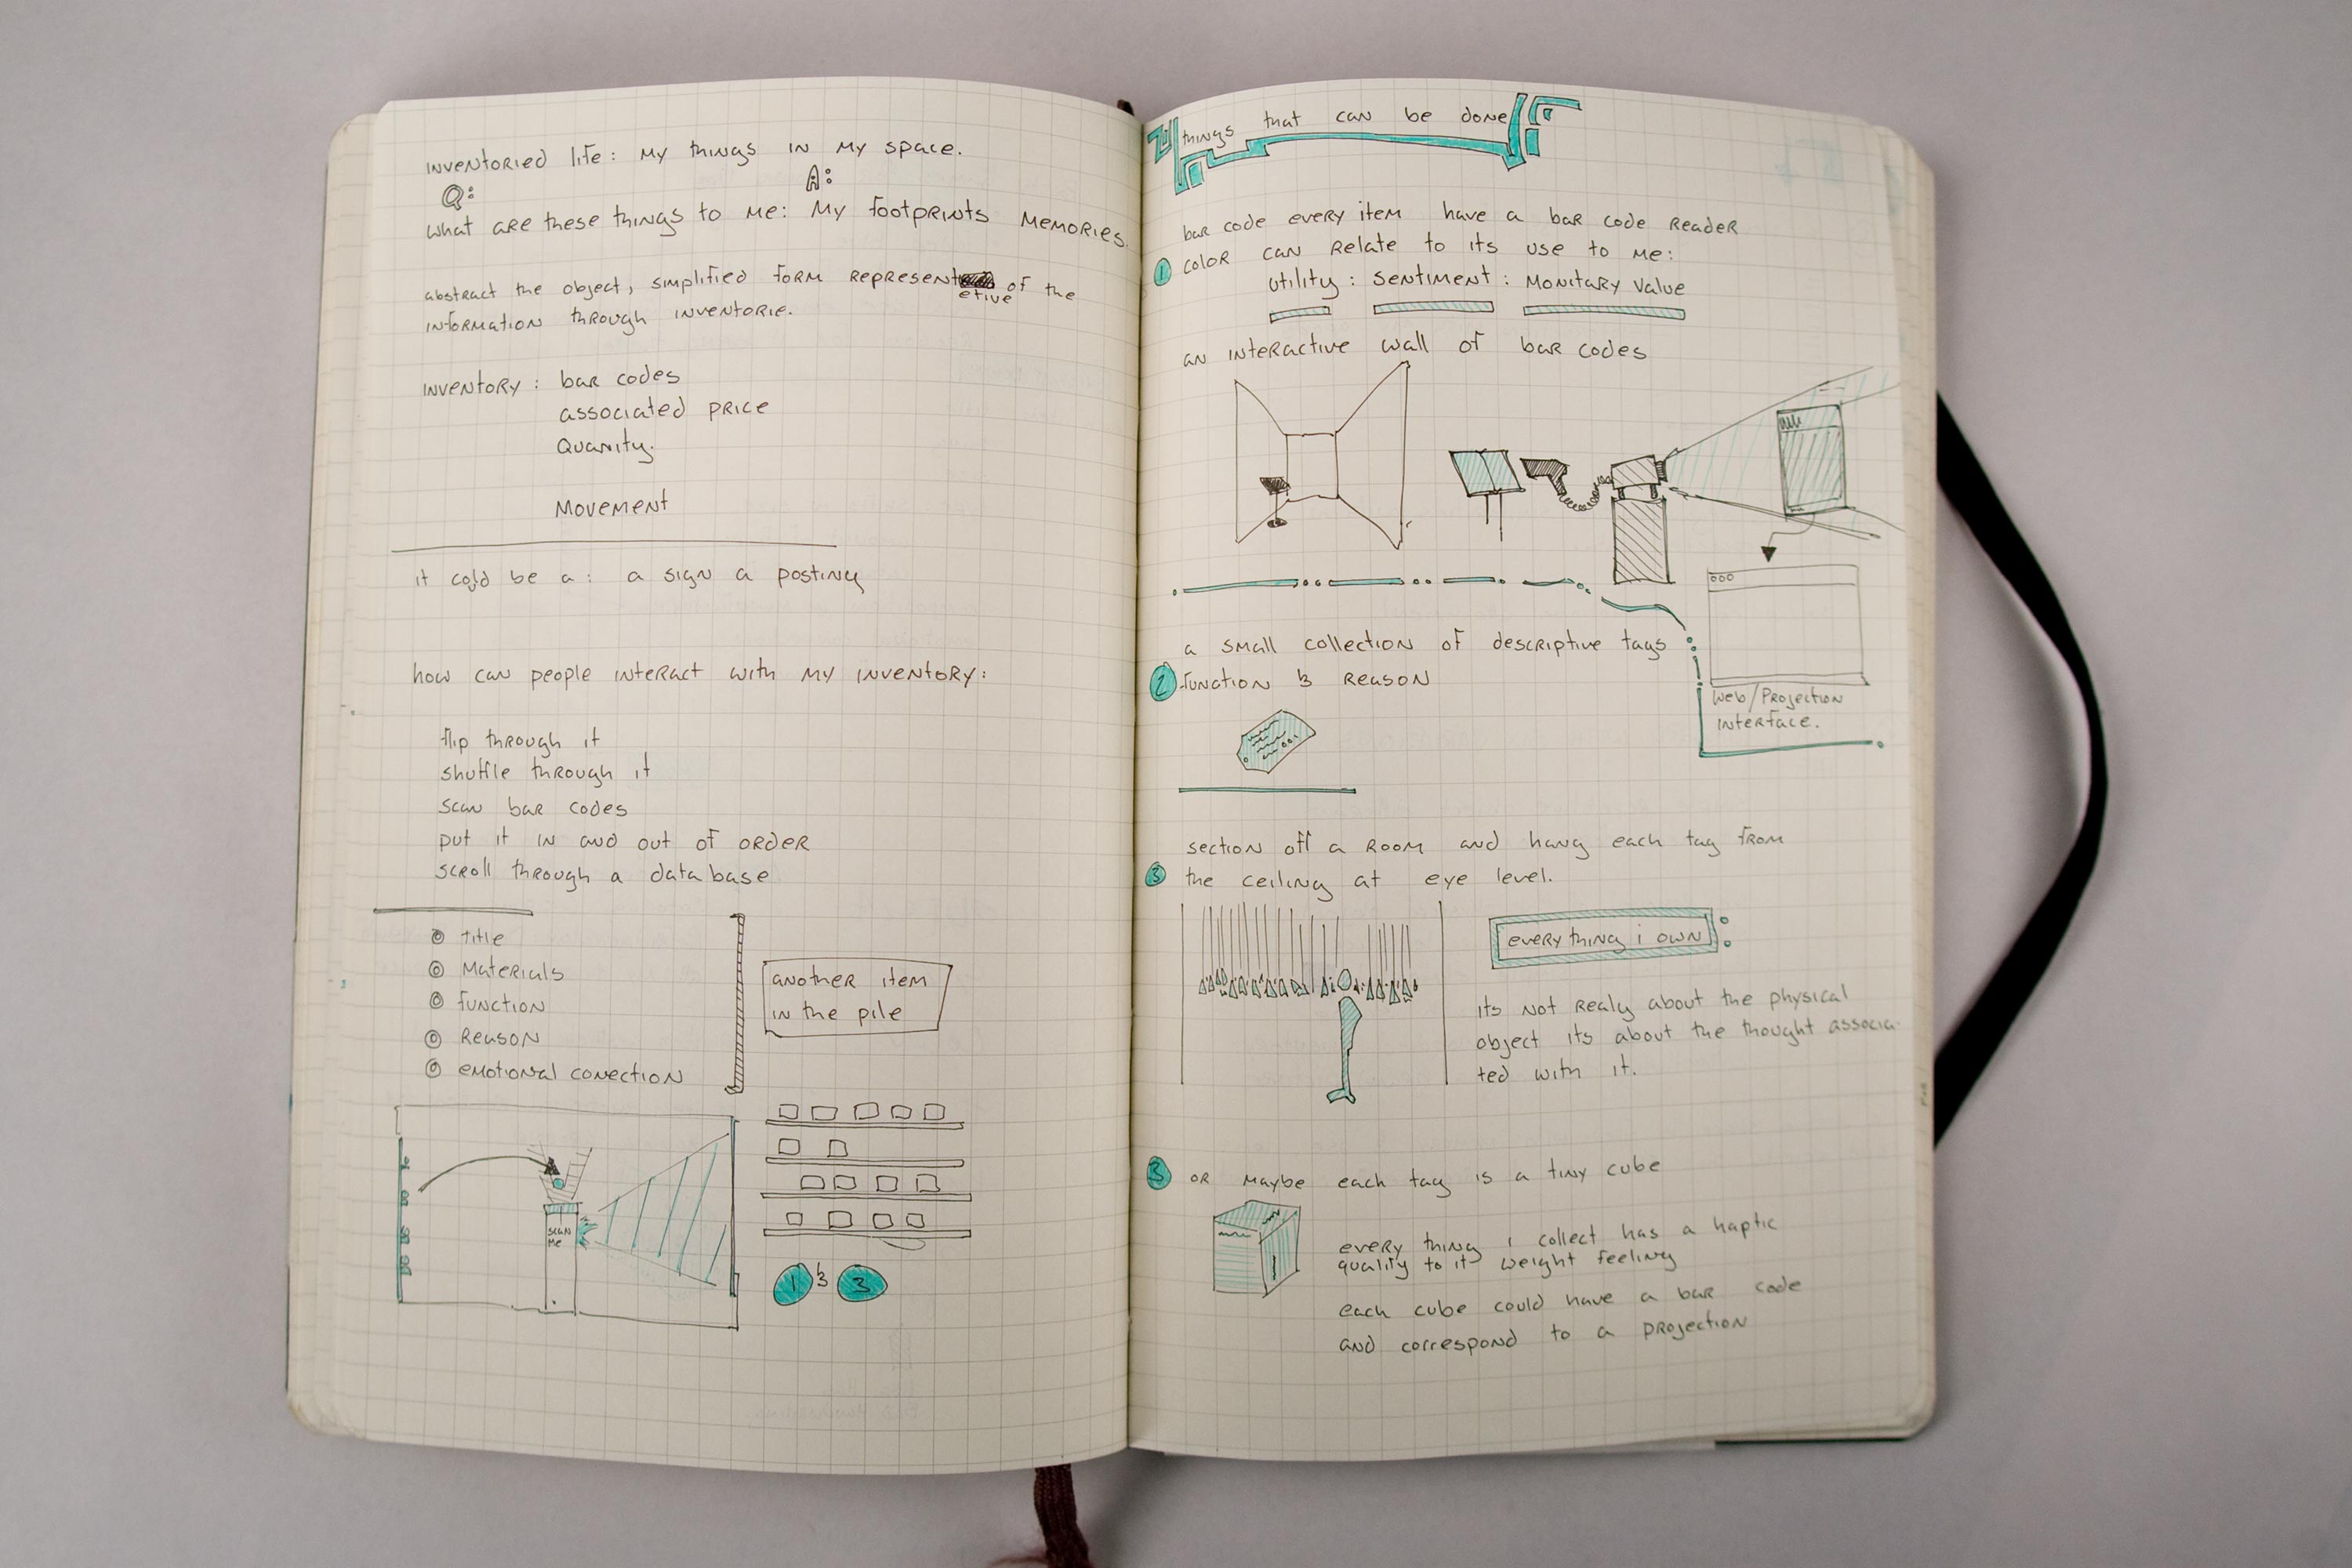 inventoried life: my things in my space.
Q: A:
what are these things to me: my footprints memories.
abstract the object, simplified form represent etive of the
information through inventorie.
inventory: bar codes
associated price
Quanity.
Movement
it cold be a: a sign a posting
how can people interact with my inventory:
flip through it
shuffle through it
scan bar codes
put it in and out of order
scroll through a database
title
Materials
function
Reason
emotional conection
another item
in the pile
scan
me
1 & 3
things that can be done
bar code every item have a bar code reader
1 color can relate to its use to me:
utility: sentiment: monitary value
an interactive wall of bar codes
a small collection of descriptive tags
2 function & reason
web/projection
interface.
section off a room and hang each tag from
3 the ceiling at eye level.
every thing i own
its not realy about the physical
object its about the thought associa-
ted with it.
3 or maybe each tag is a tiny cube
every thing i collect has a haptic
quality to it weight feeling
each cube could have a bar code
and correspond to a projection